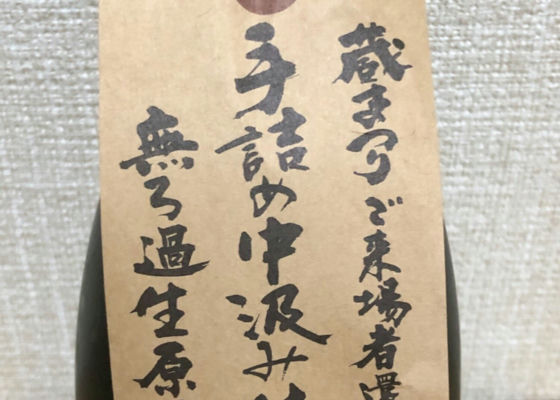 蔵まつりご来場者還
手詰め中汲み
無ろ過生原